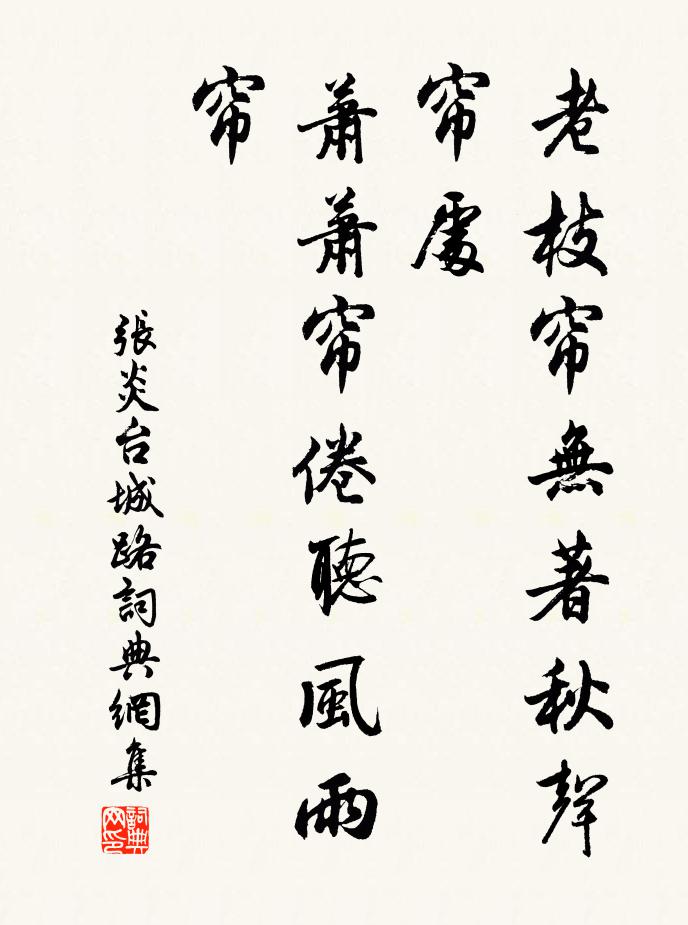 老枝帘無著秋聲
帘處
蕭蕭帘倦聽風雨
帘
張炎台城路詞典網集
詞典网印